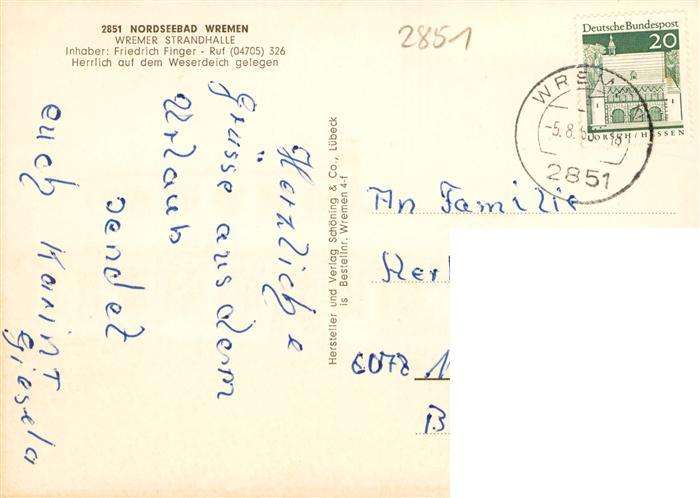 2851 NORDSEEBAD WREMEN
WREMER STRANDHALLE
Inhaber: Friedrich Finger - Ruf (04705) 326
Herrlich auf dem Weserdeich gelegen
2851
Deutsche Bundespost
20
LORSCH/HESSEN
WREMEN
-5.8.6
2851
Herzliche
Grüsse aus dem
Urlaub
sendet
euch Karin T
Giesela
Hersteller und Verlag Schöning & Co., Lübeck
is Bestellnr. Wremen 4-f
An Familie
6078